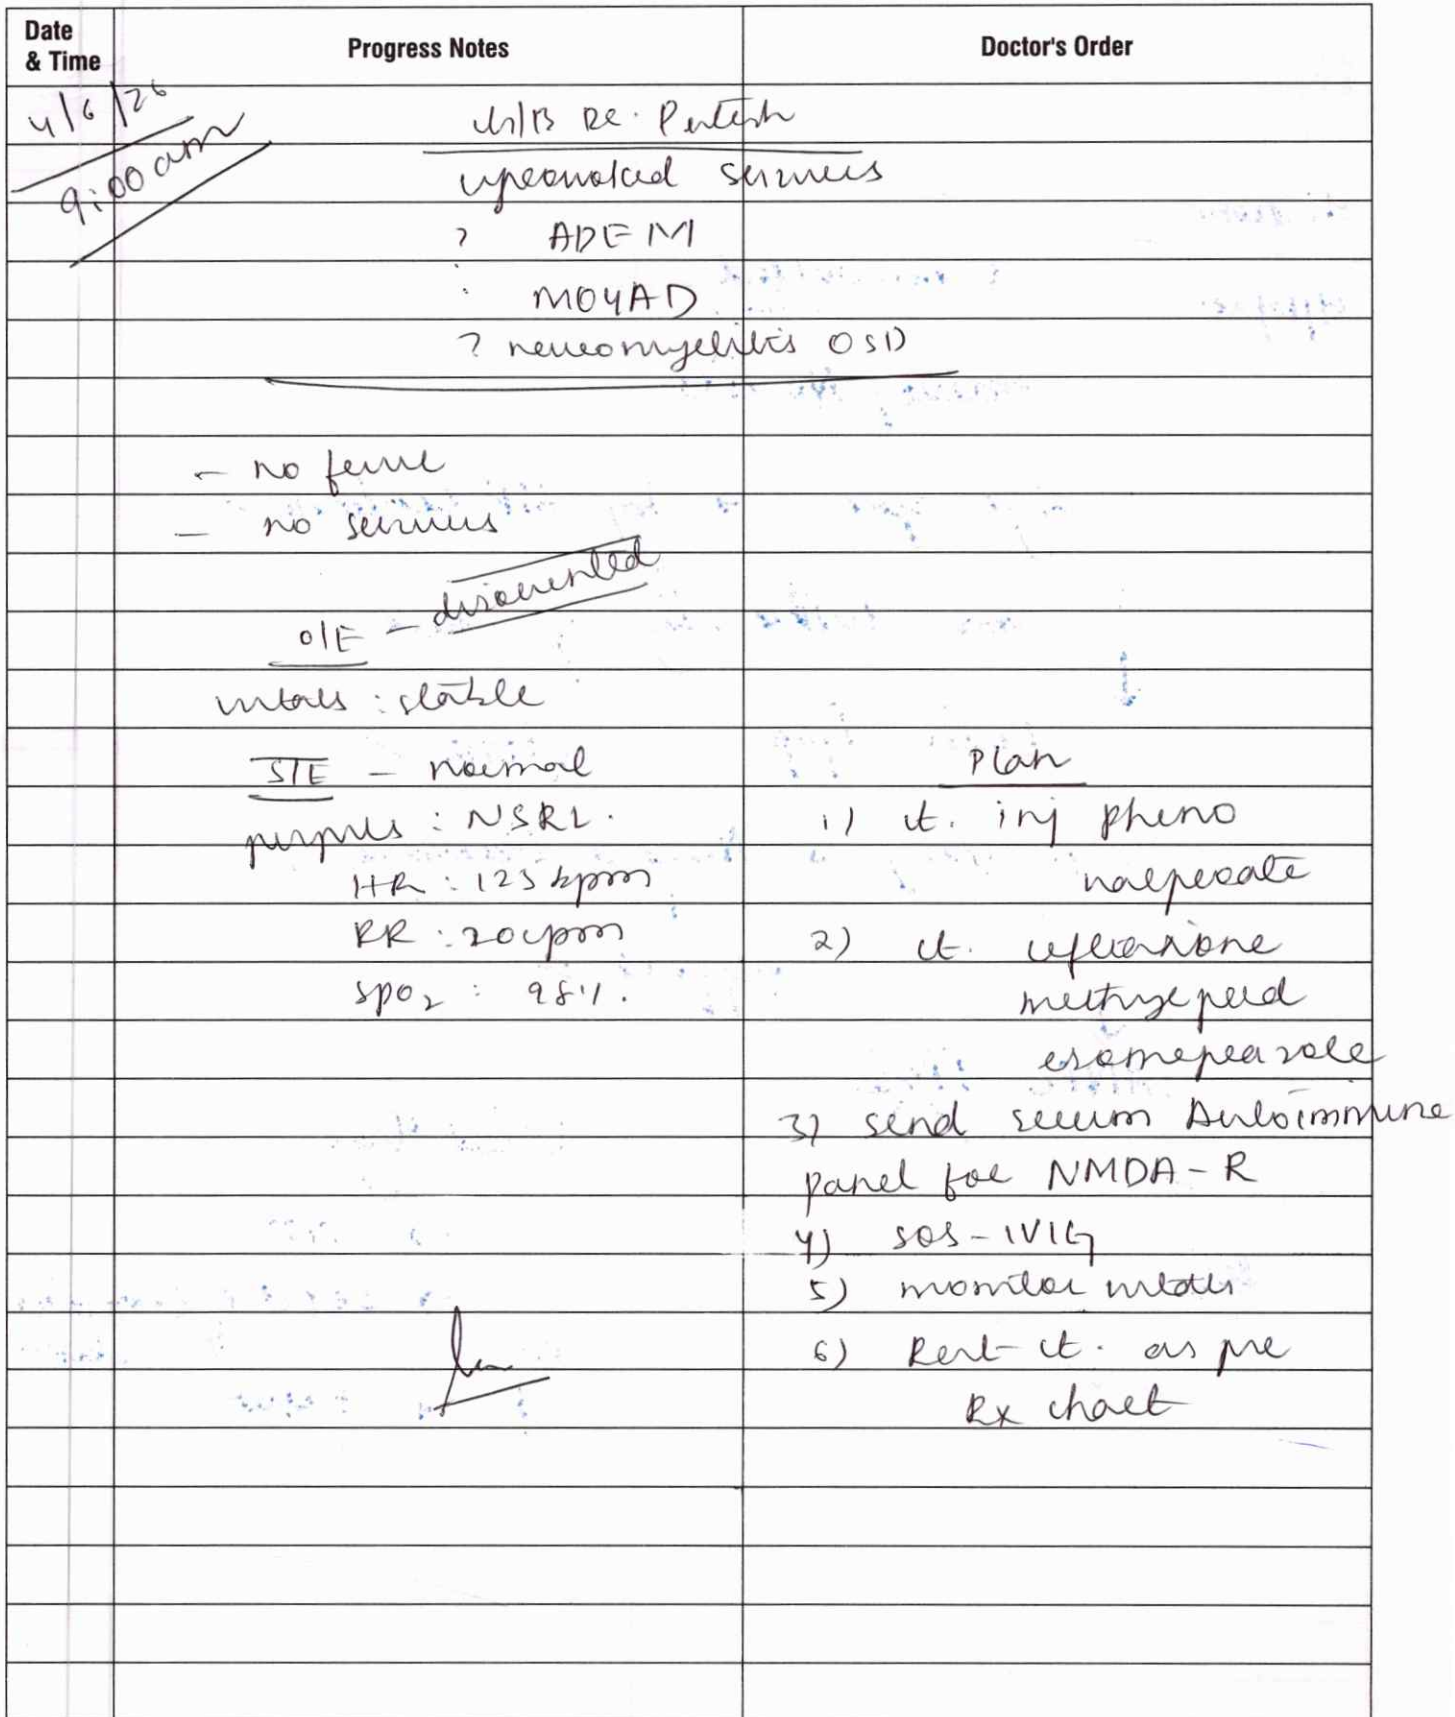 Date
& Time
Progress Notes
Doctor's Order
4/6/26
9:00 am
Dr. Pritesh
unprovoked seizures
? ADEM
MOGAD
? neuromyelitis OSD
- no fever
- no seizures
O/E - disoriented
vitals : stable
S/E - normal
pupils : NSRL.
HR : 123 bpm
RR : 20 cpm
SPO2 : 98%.
Plan
1) ct. inj pheno
valproate
2) ct. ceftriaxone
methylpred
esomeprazole
3) send serum Autoimmune
panel for NMDA-R
4) SOS - IVIG
5) monitor vitals
6) Rest ct. as per
Rx chart